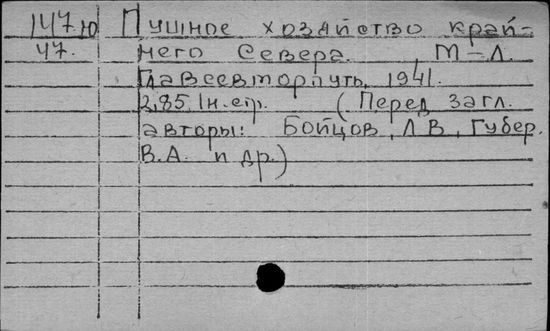 147ю Пушное хозяйство край-
47. него Севера. М-Л.
Главсевморпуть, 1941.
2,85,1н.стр. (Перед загл.
авторы: Бойцов, Л В, Губер.
В.А. и др.)